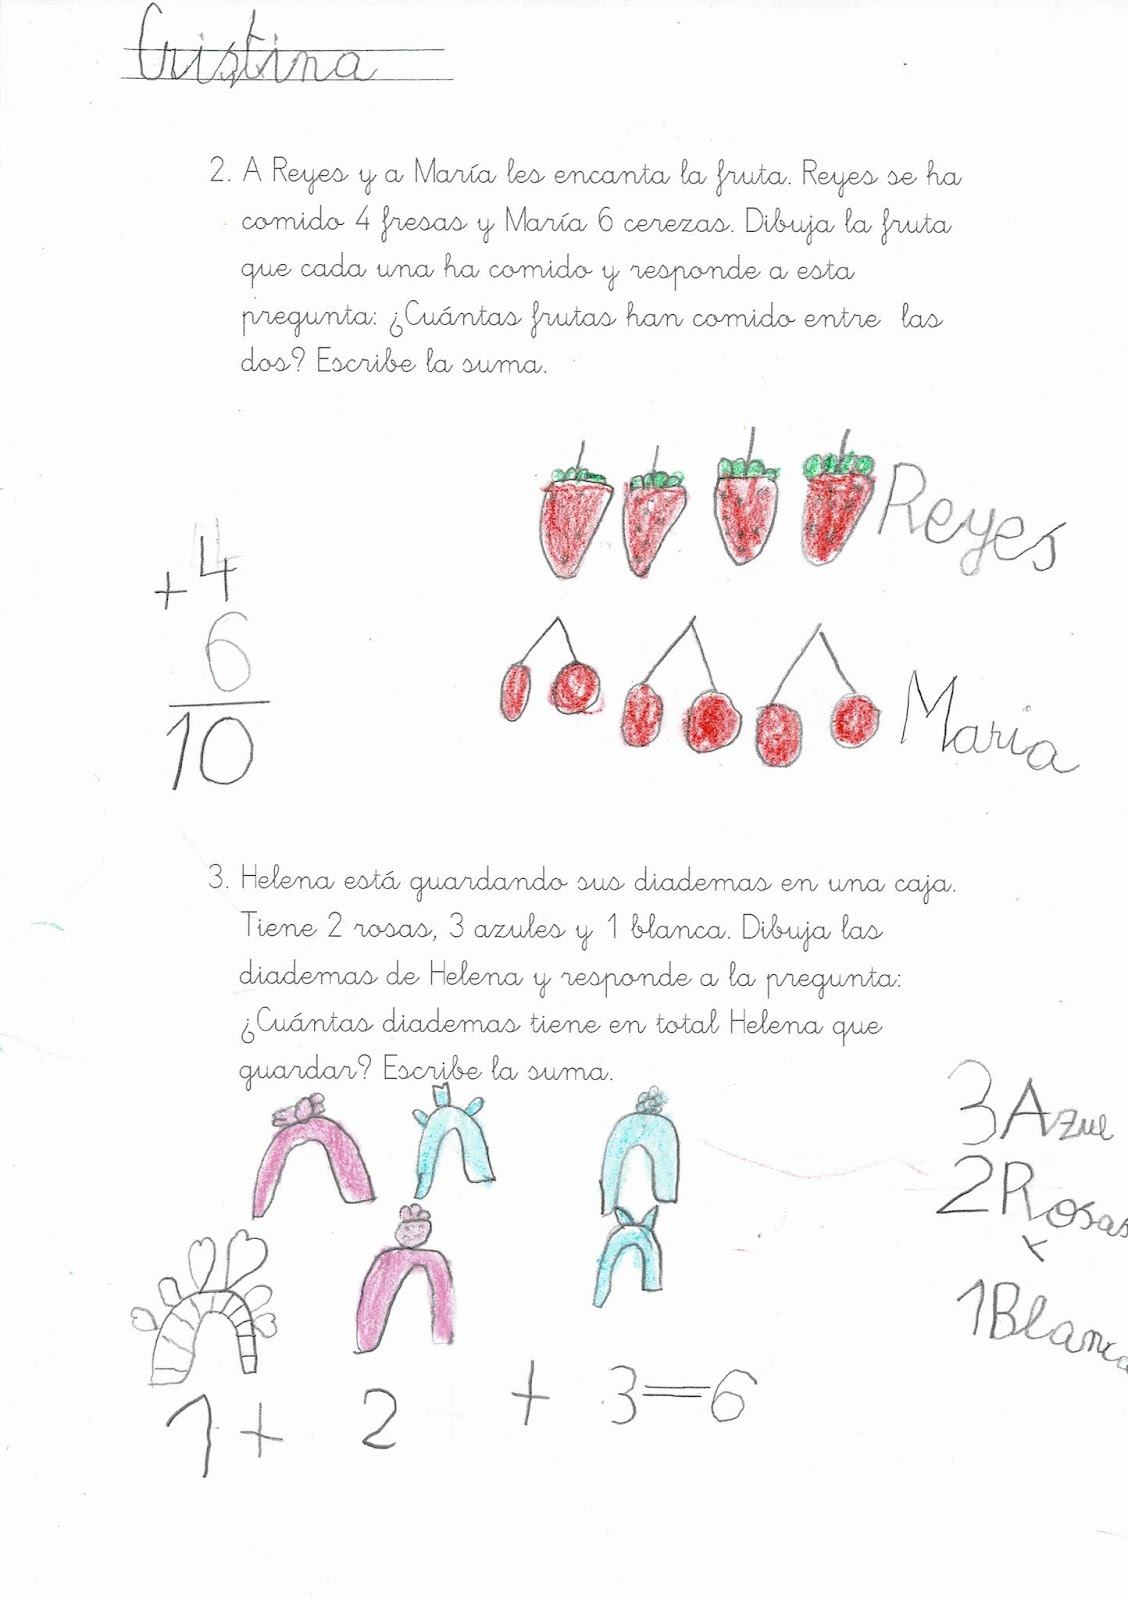 Cristina
2. A Reyes y a María les encanta la fruta. Reyes se ha
comido 4 fresas y María 6 cerezas. Dibuja la fruta
que cada una ha comido y responde a esta
pregunta: ¿Cuántas frutas han comido entre las
dos? Escribe la suma.
Reyes
+4
6
10
Maria
3. Helena está guardando sus diademas en una caja.
Tiene 2 rosas, 3 azules y 1 blanca. Dibuja las
diademas de Helena y responde a la pregunta:
¿Cuántas diademas tiene en total Helena que
guardar? Escribe la suma.
3 Azul
2 Rosas
1 Blanca
1 + 2 + 3 = 6